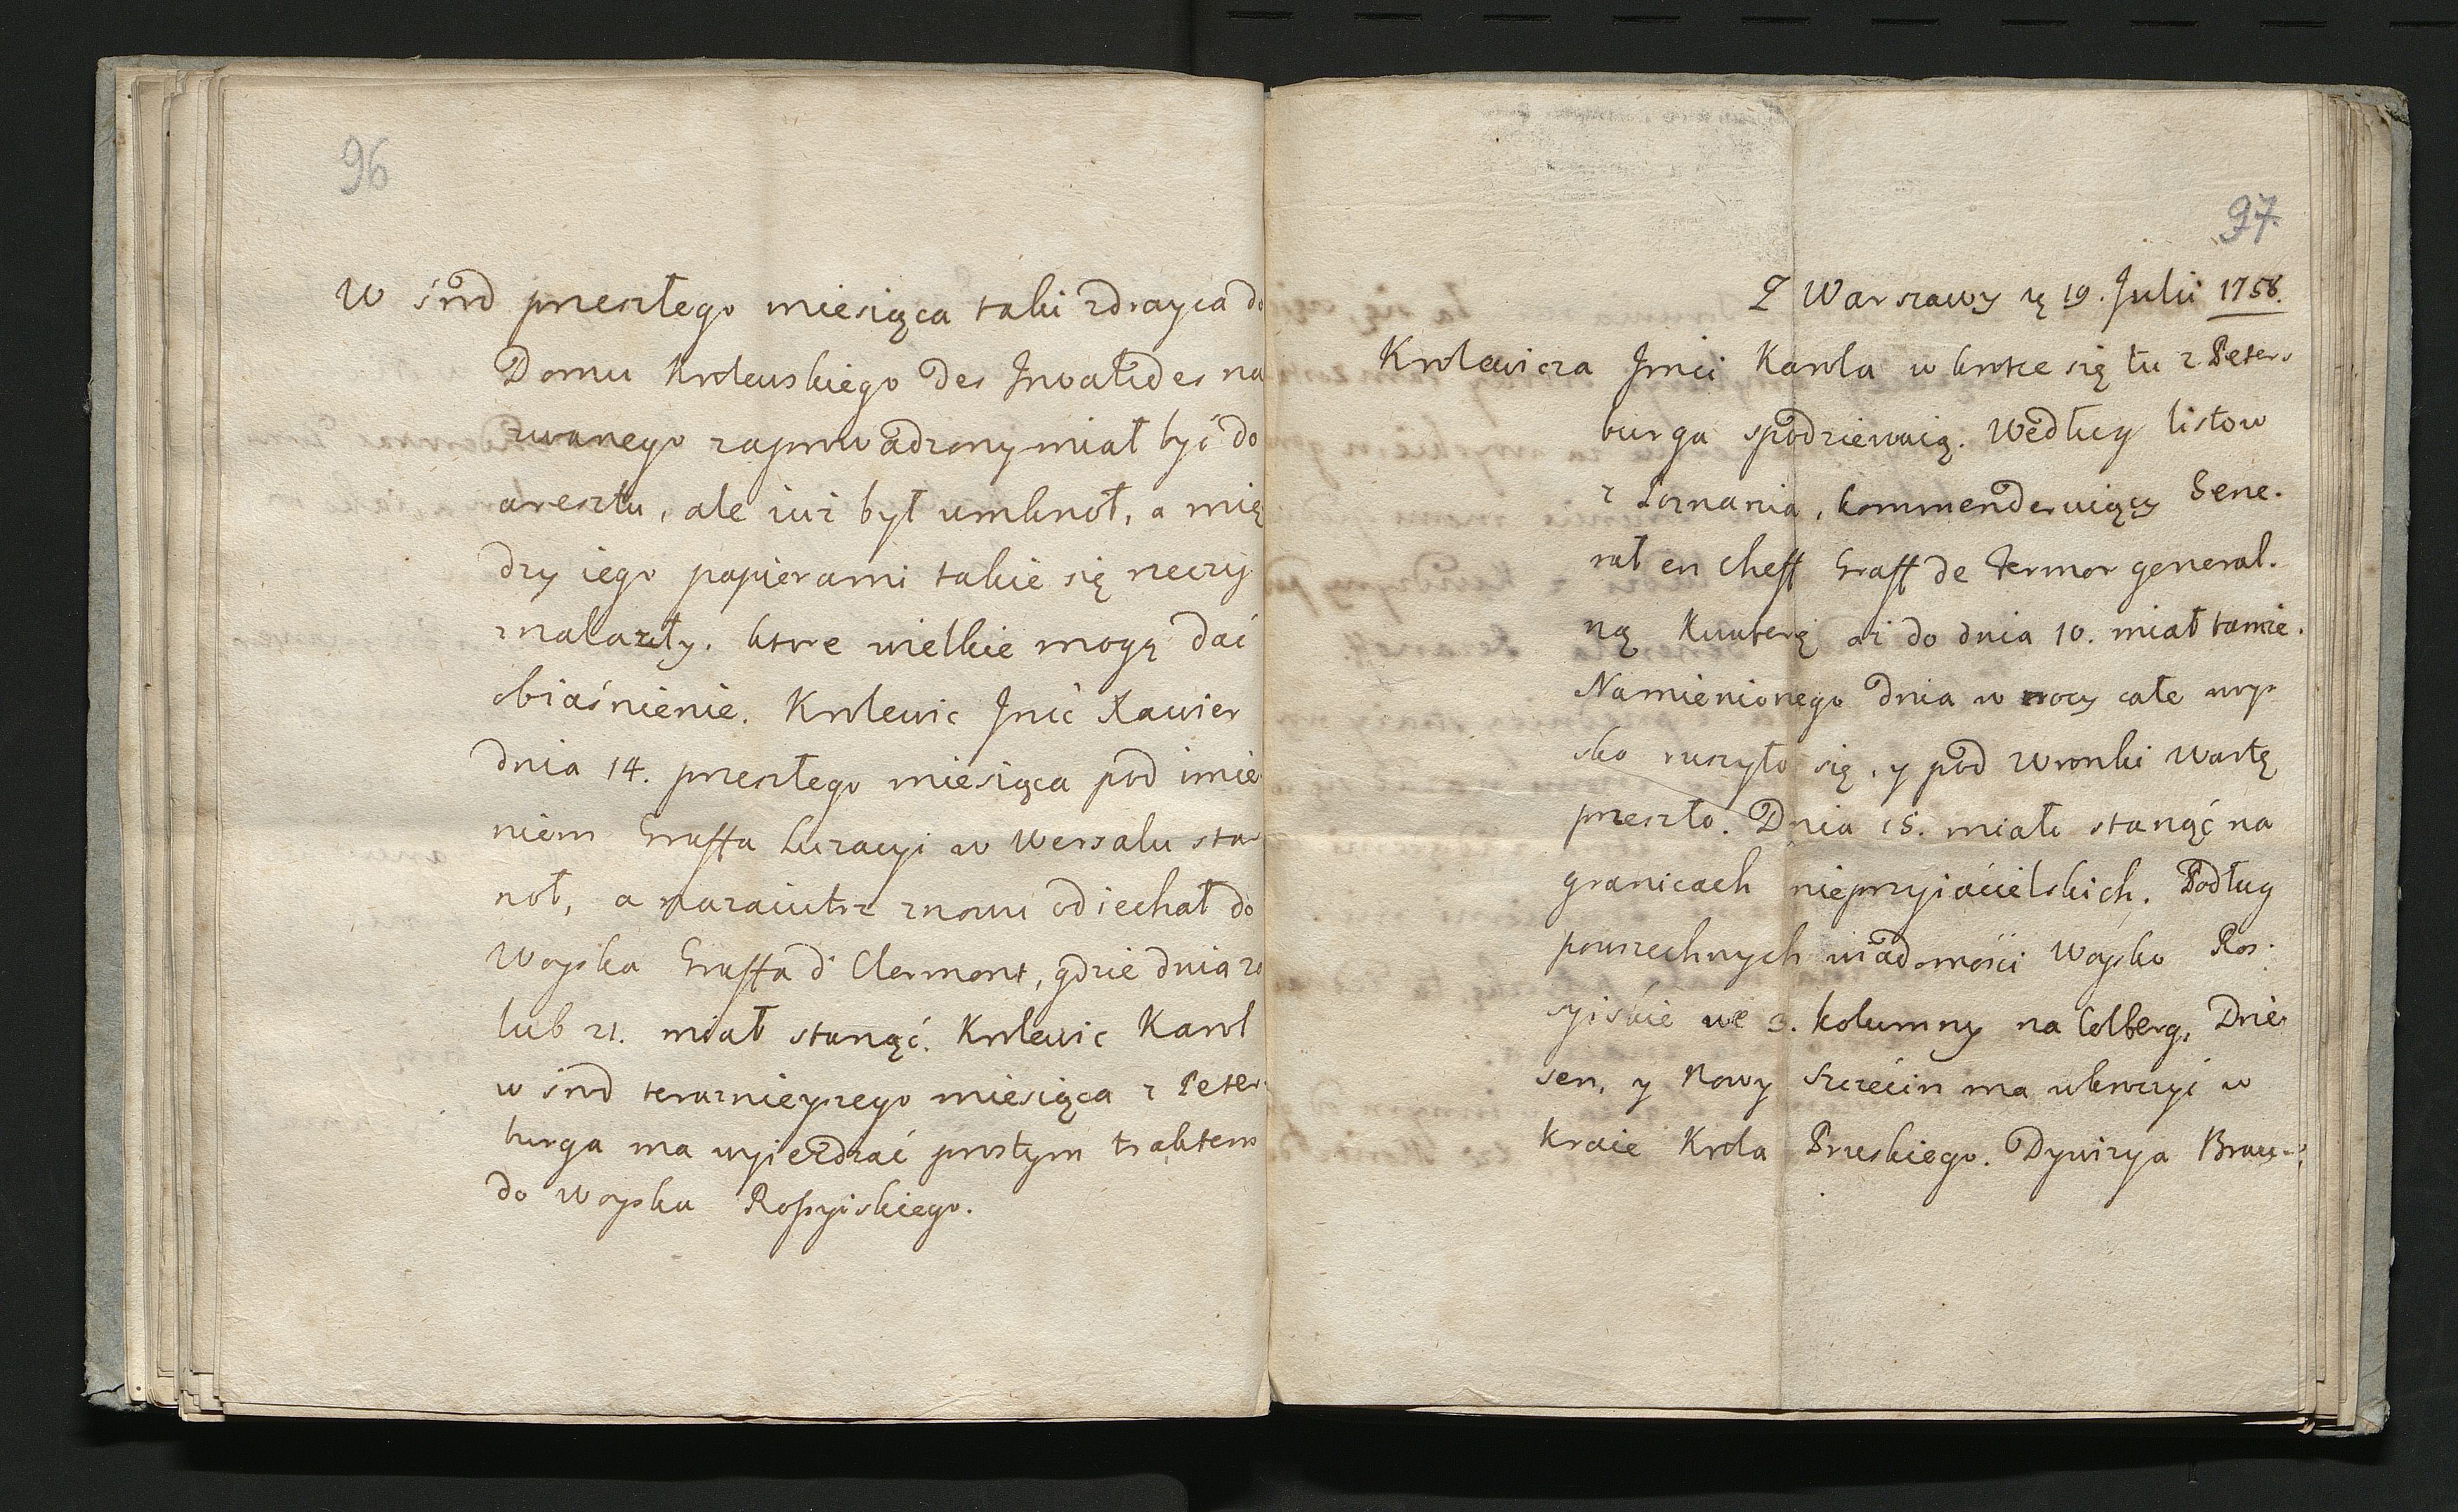 96
W środ przeszłego miesiąca taki zdrayca do
Domu Krolewskiego des Invalides na
zwanego zaprowadzony miał być do
aresztu, ale iuż był umknoł, a mię
dzy iego papierami takie się rzeczy
znalazły. ktore wielkie mogą dać
obiaśnienie. Krolewic Jmć Xawier
dnia 14. przeszłego miesiąca pod imie
niem Graffa Luzacyi w Wersalu sta
noł, a nazaiutrz znowu odiechał do
Woyska Graffa d' Clermont, gdzie dnia 20
lub 21. miał stanąć. Krolewic Karol
w środ teraznieyszego miesiąca z Peter
burga ma wyieżdzać prostym traktem
do Woyska Rossyiskiego.
97.
Z Warszawy 19. Julii 1758.
Krolewicza Jmci Karola w krotce się tu z Peters
burga spodziewaią. Według listow
z Poznania, kommenderuiący Gene.
rał en Cheff Graff de Fermor general.
ną Kwaterę aż do dnia 10. miał tamże.
Namienionego dnia w nocy całe woy
sko ruszyło się, y pod Wronki Wartę
przeszło. Dnia 15. miało stanąć na
granicach nieprzyiacielskich. Podług
powszechnych wiadomości Woysko Ros.
syiskie we 3. kolumny na Colberg, Drie
sen, y Nowy Szczecin ma wkroczyć w
Kraie Krola Pruskiego. Dywizya Brau-